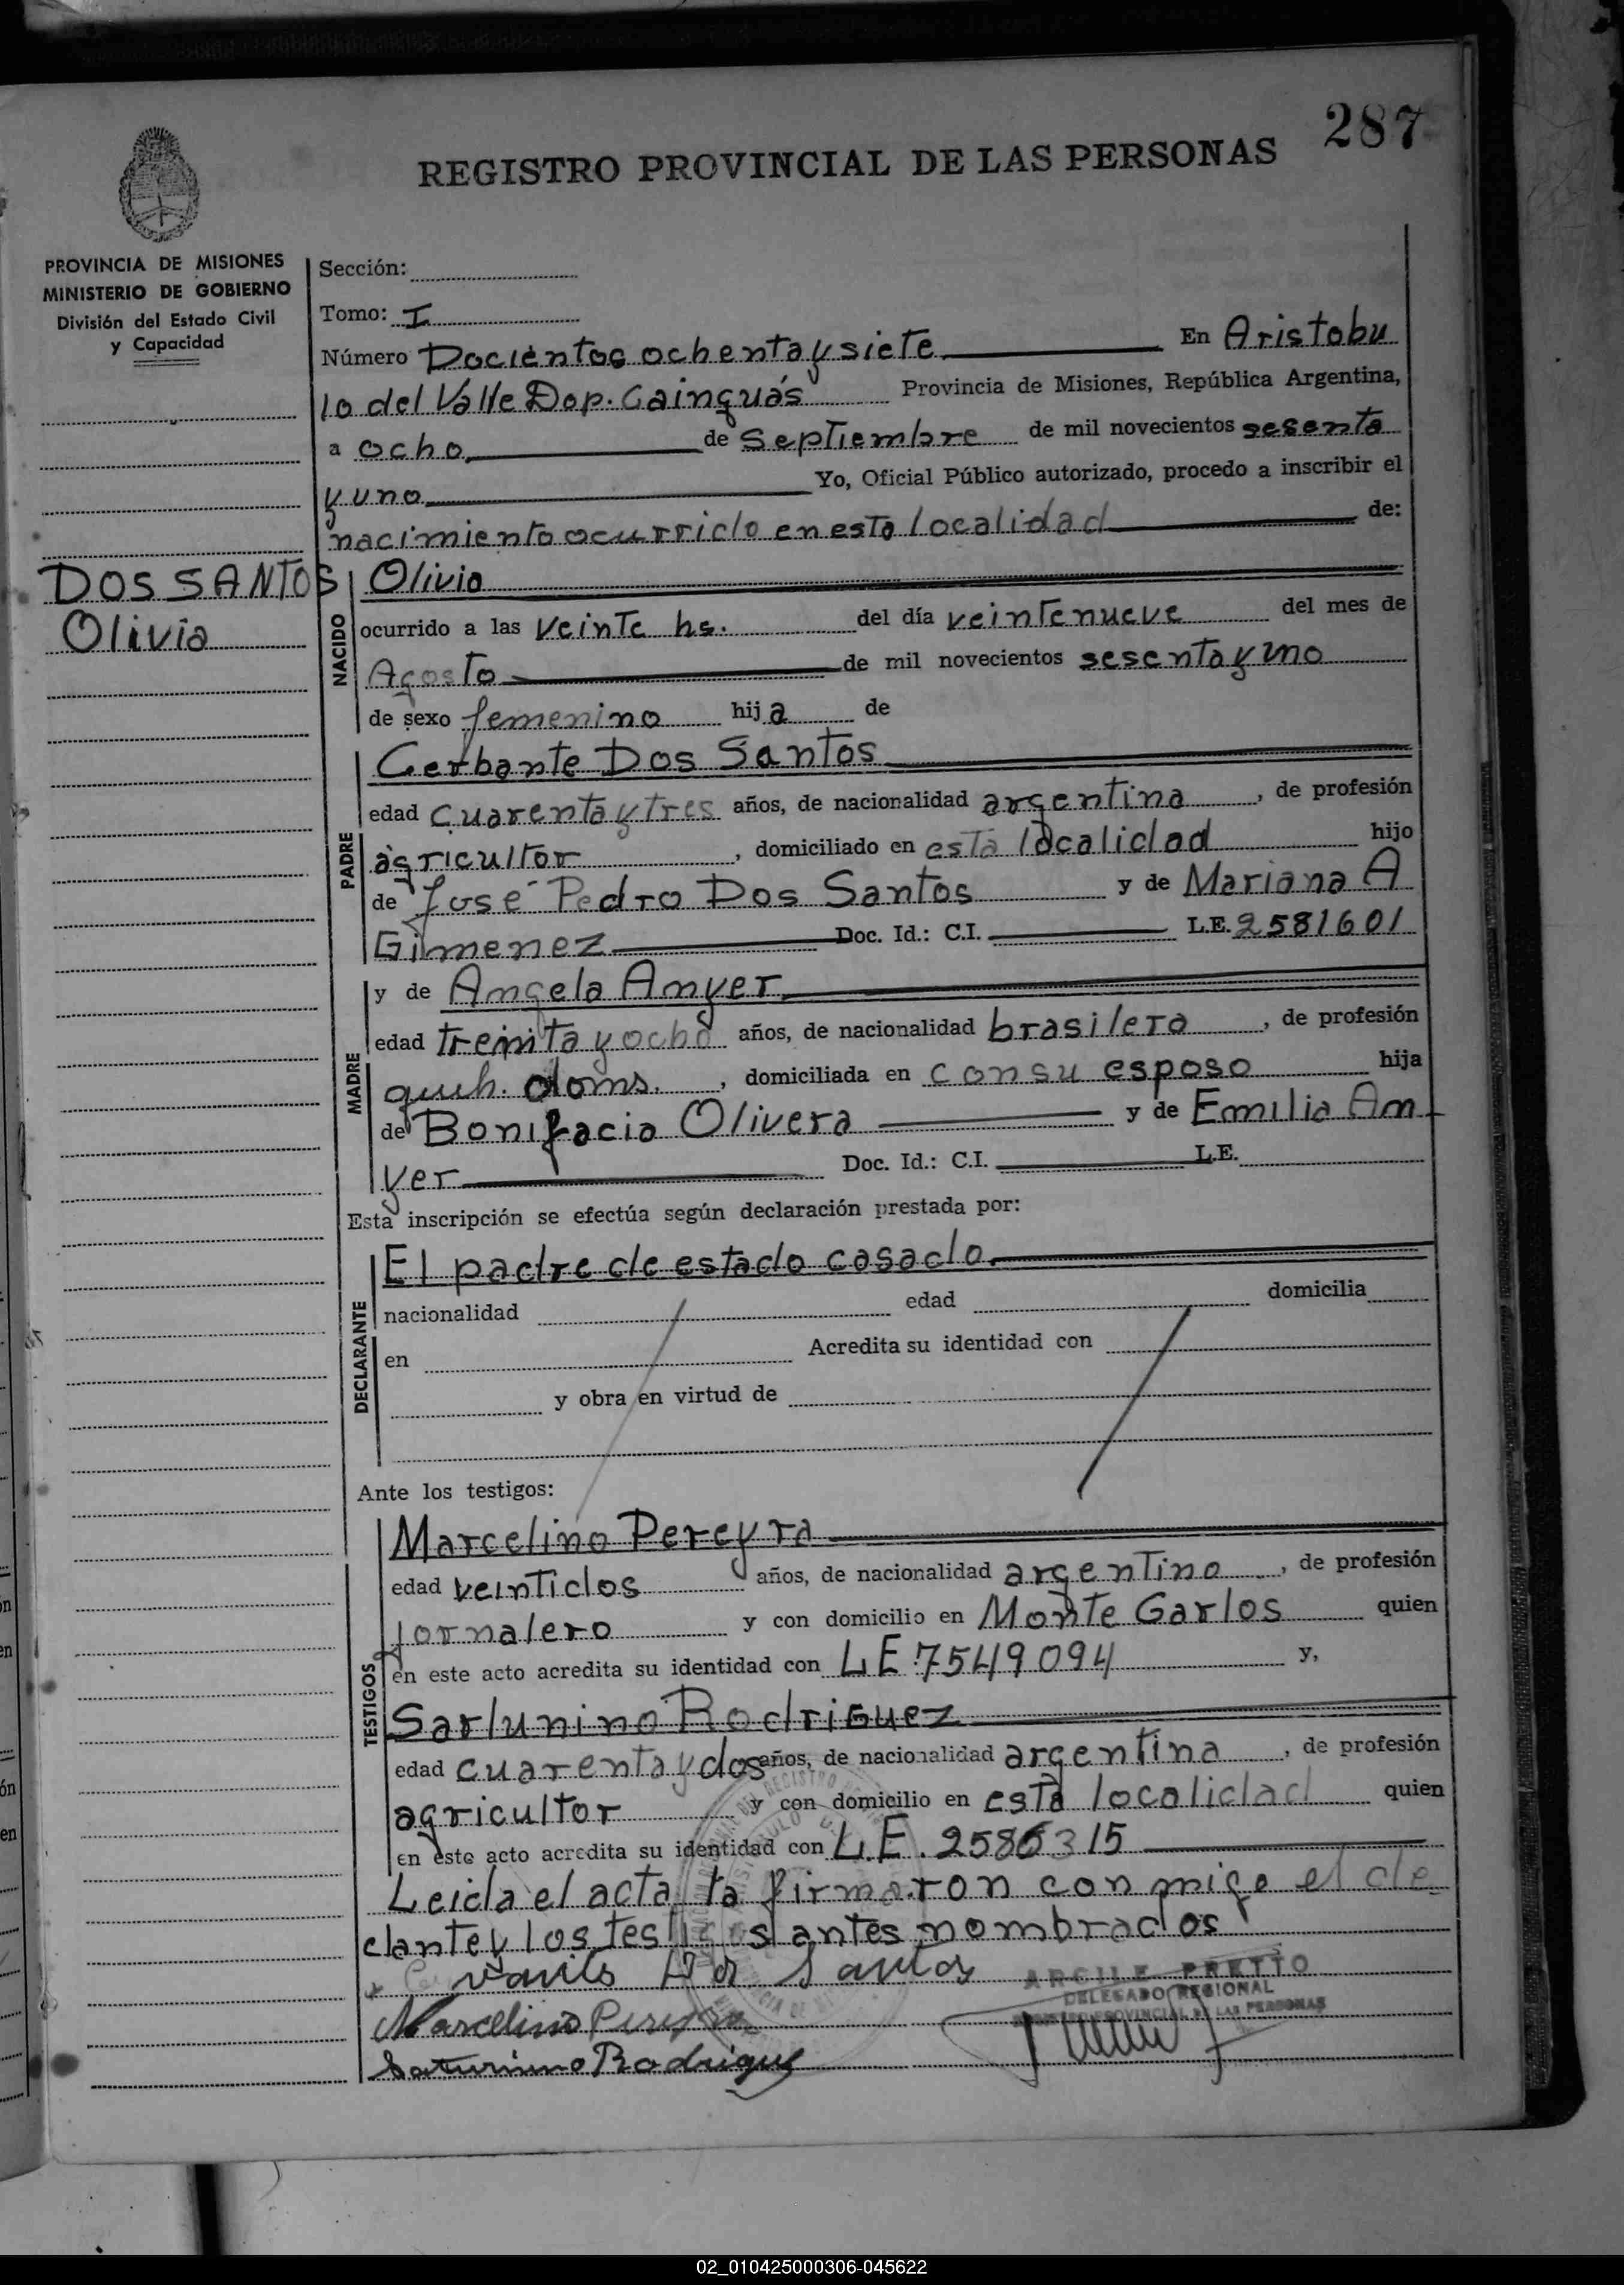 287
REGISTRO PROVINCIAL DE LAS PERSONAS
PROVINCIA DE MISIONES
MINISTERIO DE GOBIERNO
División del Estado Civil
y Capacidad
DOS SANTOS
Olivia
Sección:
Tomo: I
Número Docientos ochenta y siete En Aristobu
lo del Valle Dop. Cainguás Provincia de Misiones, República Argentina,
a ocho de Septiembre de mil novecientos sesenta
y uno Yo, Oficial Público autorizado, procedo a inscribir el
nacimiento ocurrido en esta localidad de:
NACIDO
Olivia
ocurrido a las veinte hs. del día veintenueve del mes de
Agosto de mil novecientos sesenta y uno
de sexo femenino hija de
PADRE
Cerbante Dos Santos
edad cuarenta y tres años, de nacionalidad argentina, de profesión
agricultor, domiciliado en esta localidad hijo
de José Pedro Dos Santos y de Mariana A
Gimenez Doc. Id.: C.I. L.E. 2581601
MADRE
y de Angela Anyer
edad treinta y ocho años, de nacionalidad brasilera, de profesión
queh. doms., domiciliada en con su esposo hija
de Bonifacio Olivera y de Emilia An
yer Doc. Id.: C.I. L.E.
Esta inscripción se efectúa según declaración prestada por:
DECLARANTE
El padre de estado casado.
nacionalidad edad domicilia
en Acredita su identidad con
y obra en virtud de
Ante los testigos:
TESTIGOS
Marcelino Pereyra
edad veintidos años, de nacionalidad argentino, de profesión
jornalero y con domicilio en Monte Carlos quien
en este acto acredita su identidad con LE 7549094 y,
Sarlunino Rodriguez
edad cuarenta y dos años, de nacionalidad argentina, de profesión
agricultor y con domicilio en esta localidad quien
en este acto acredita su identidad con L.E. 2586315
Leida el acta, la firmaron conmigo el de
clante y los testigos antes nombrados
Dos Santos
ARGILE PRETTO
DELEGADO REGIONAL
REGISTRO PROVINCIAL DE LAS PERSONAS
Marcelino Pereyra
Saturnino Rodriguez
02_010425000306-045622